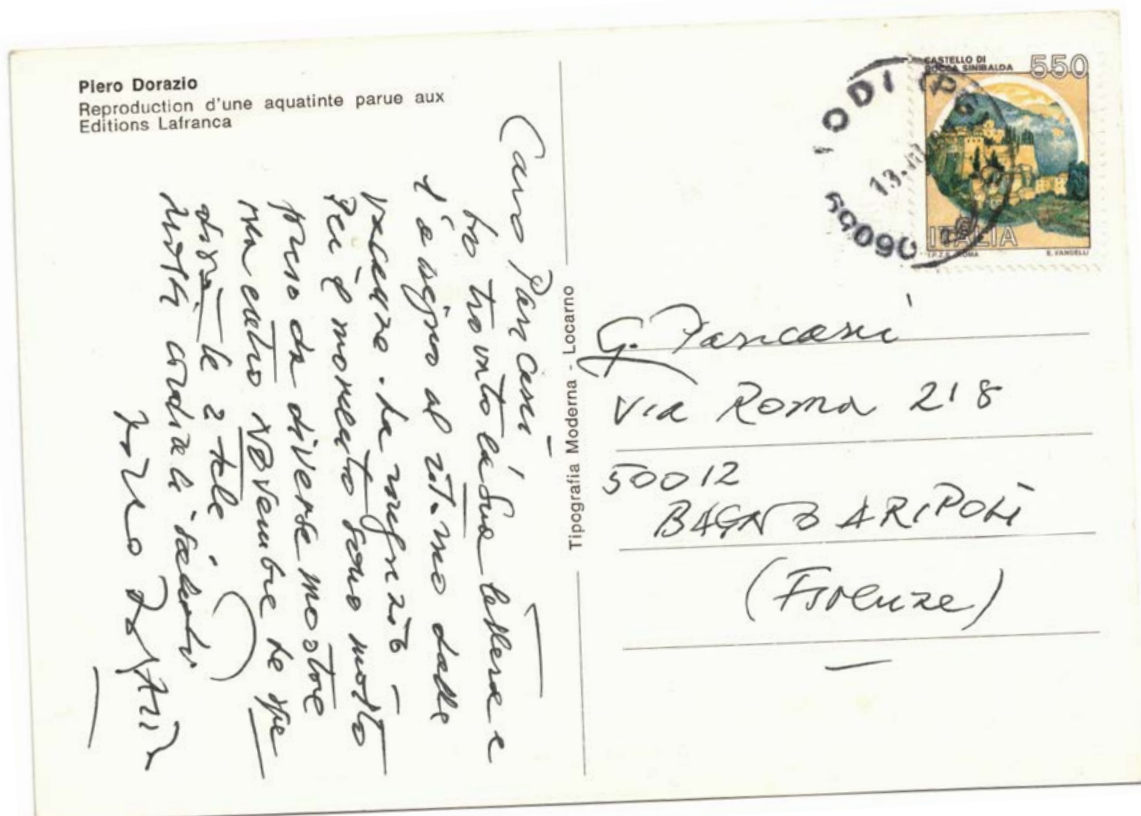 Piero Dorazio
Reproduction d'une aquatinte parue aux
Editions Lafranca
Caro Pancani
ho trovato la Sua lettera e
l'assegno al ritorno dalle
vacanze. La ringrazio.
Per il momento sono molto
preso da diverse mostre
ma entro novembre Le spe
dirò le 2 tele.
Molti cordiali saluti
Piero Dorazio
Tipografia Moderna - Locarno
CASTELLO DI
ROCCA SINIBALDA
550
ITALIA
I.P.Z.S. ROMA
E. VANGELLI
TODI (PG)
13.
06059
G. Pancani
Via Roma 218
50012
BAGNO A RIPOLI
(Firenze)